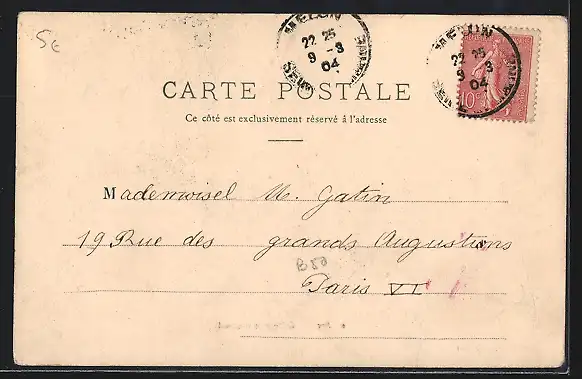 5e
MELUN
22 25
9 -3
04
MELUN
22 25
9 3
04
10
CARTE POSTALE
Ce côté est exclusivement réservé á l'adresse
Mademoisel M. Gatin
19 Rue des grands Augustins
B59
Paris VI